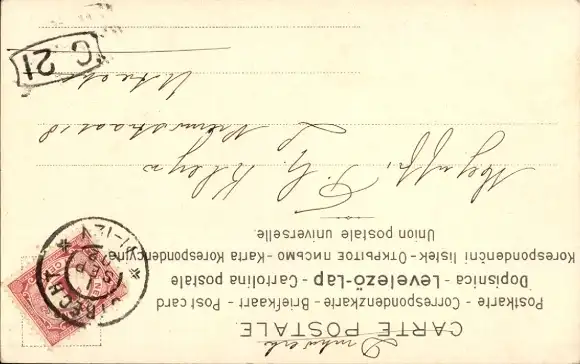 Drukwerk
CARTE POSTALE.
Postkarte - Correspondenzkarte - Briefkaart - Post card
Dopisnica - Levelező-Lap - Cartolina postale
Korespondenční listek - Открытое письмо - Karta Korespondencyjna
Union postale universelle.
UTRECHT
1 SEP
11-12V
Mejuffr.
Utrecht
G 21